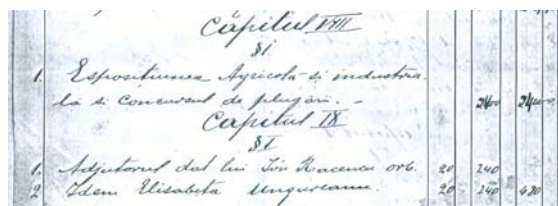 Capitul VIII
§I.
1. Espositiunea Agricolă si industria-
lă si Concursul de plugari. - 2400 2400
Capitul IX
§I
1. Adjutorul dat lui Ión Racencu orb. 20 240
2 Idem Elisabeta Ungureanu. 20 240 480